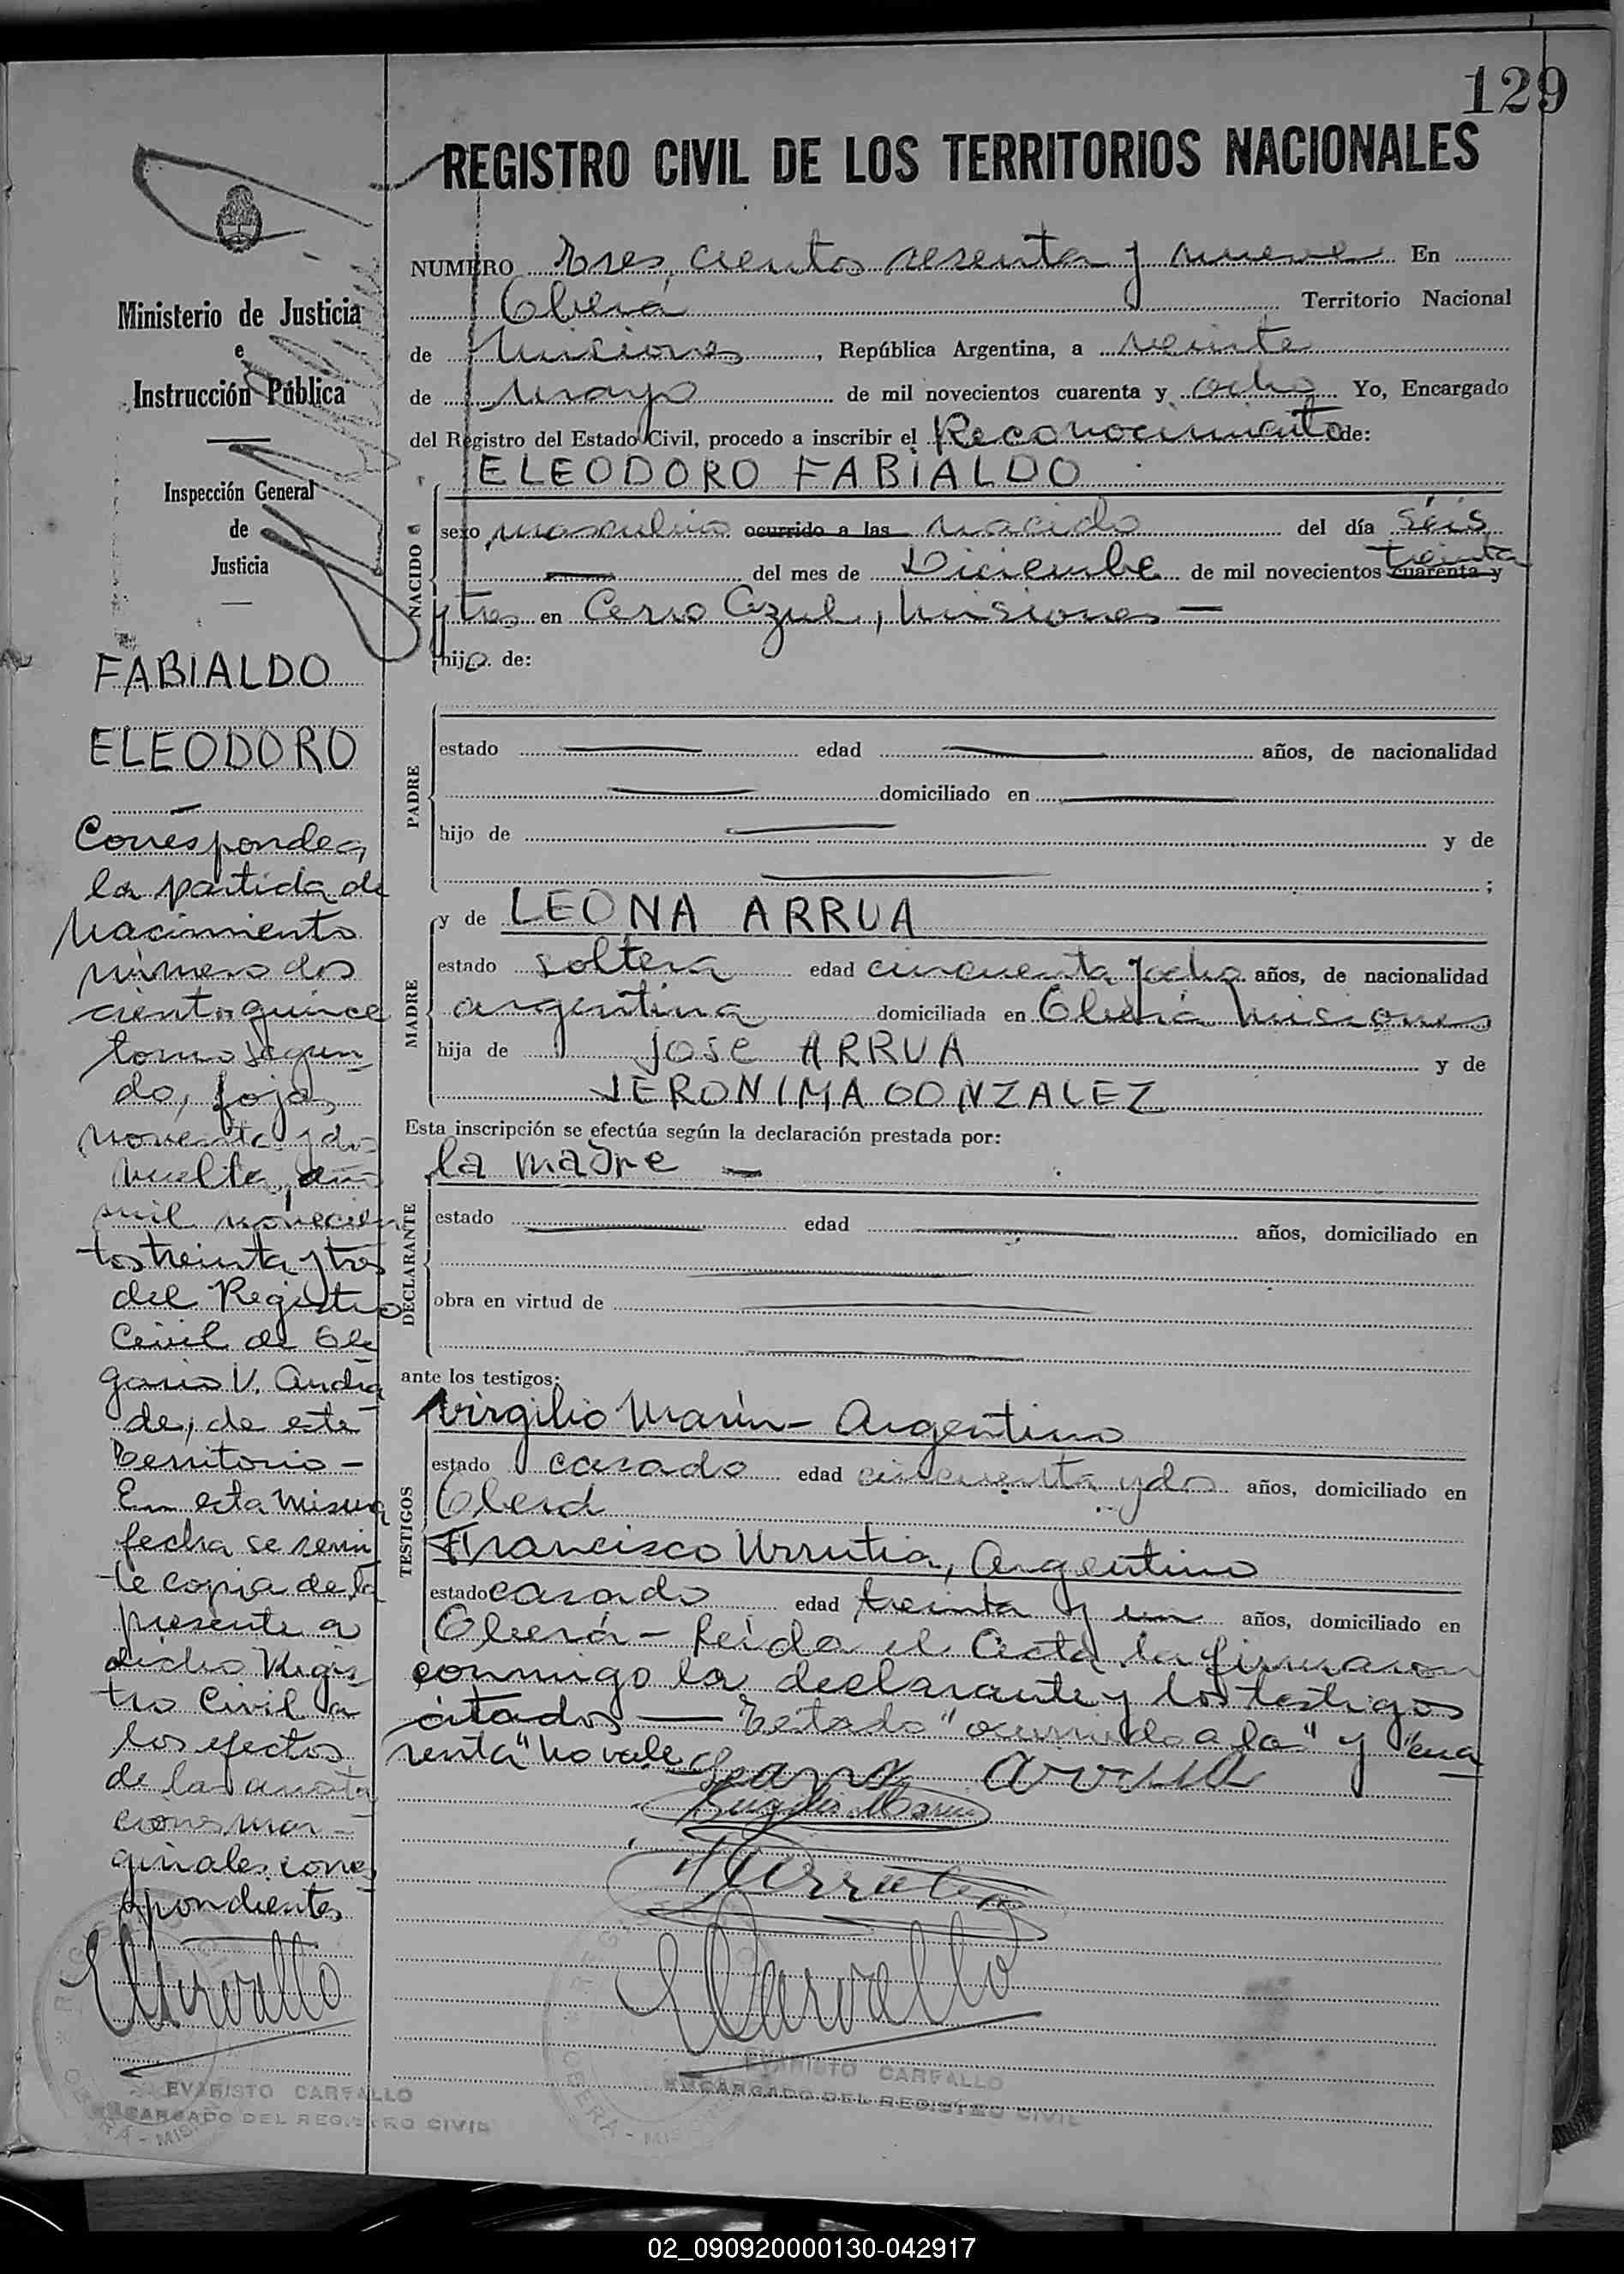 129
REGISTRO CIVIL DE LOS TERRITORIOS NACIONALES
NUMERO Tres cientos sesenta y nueve En
Oberá Territorio Nacional
de Misiones, República Argentina, a veinte
de Mayo de mil novecientos cuarenta y ocho Yo, Encargado
del Registro del Estado Civil, procedo a inscribir el Reconocimiento de:
ELEODORO FABIALDO
NACIDO
sexo masculino ocurrido a las nacido del día séis
— del mes de Diciembre de mil novecientos cuarenta y treinta
y tres en Cerro Azul, Misiones —
hijo de:
PADRE
estado — edad — años, de nacionalidad
— domiciliado en —
hijo de — y de
— ;
MADRE
y de LEONA ARRUA
estado soltera edad cincuenta y ocho años, de nacionalidad
argentina domiciliada en Oberá Misiones
hija de JOSE ARRUA y de
JERONIMA GONZALEZ
Esta inscripción se efectúa según la declaración prestada por:
DECLARANTE
la madre —
estado — edad — años, domiciliado en
—
obra en virtud de —
—
ante los testigos:
TESTIGOS
Virgilio Marín - Argentino
estado casado edad cincuenta y dos años, domiciliado en
Oberá
Francisco Urrutia, Argentino
estado casado edad treinta y un años, domiciliado en
Oberá - Leída el Acta la firmaron
conmigo la declarante y los testigos
citados — Testado "ocurrido a la" y "cua
renta" no vale
Leana Arrua
Virgilio Marin
FUrrutia
ECarvallo
EVARISTO CARVALLO
ENCARGADO DEL REGISTRO CIVIL
Ministerio de Justicia
e
Instrucción Pública
Inspección General
de
Justicia
FABIALDO
ELEODORO
Corresponde a
la partida de
Nacimiento
número dos
ciento quince
tomo segun
do, foja
noventa y dos
vuelta, año
mil novecien
tos treinta y tres
del Registro
Civil de Ole
gario V. Andra
de, de este
Territorio -
En esta misma
fecha se remi
te copia de la
presente a
dicho Regis
tro Civil a
los efectos
de las anota
ciones mar-
ginales corres
pondientes
ECarvallo
EVARISTO CARVALLO
ENCARGADO DEL REGISTRO CIVIL
02_090920000130-042917